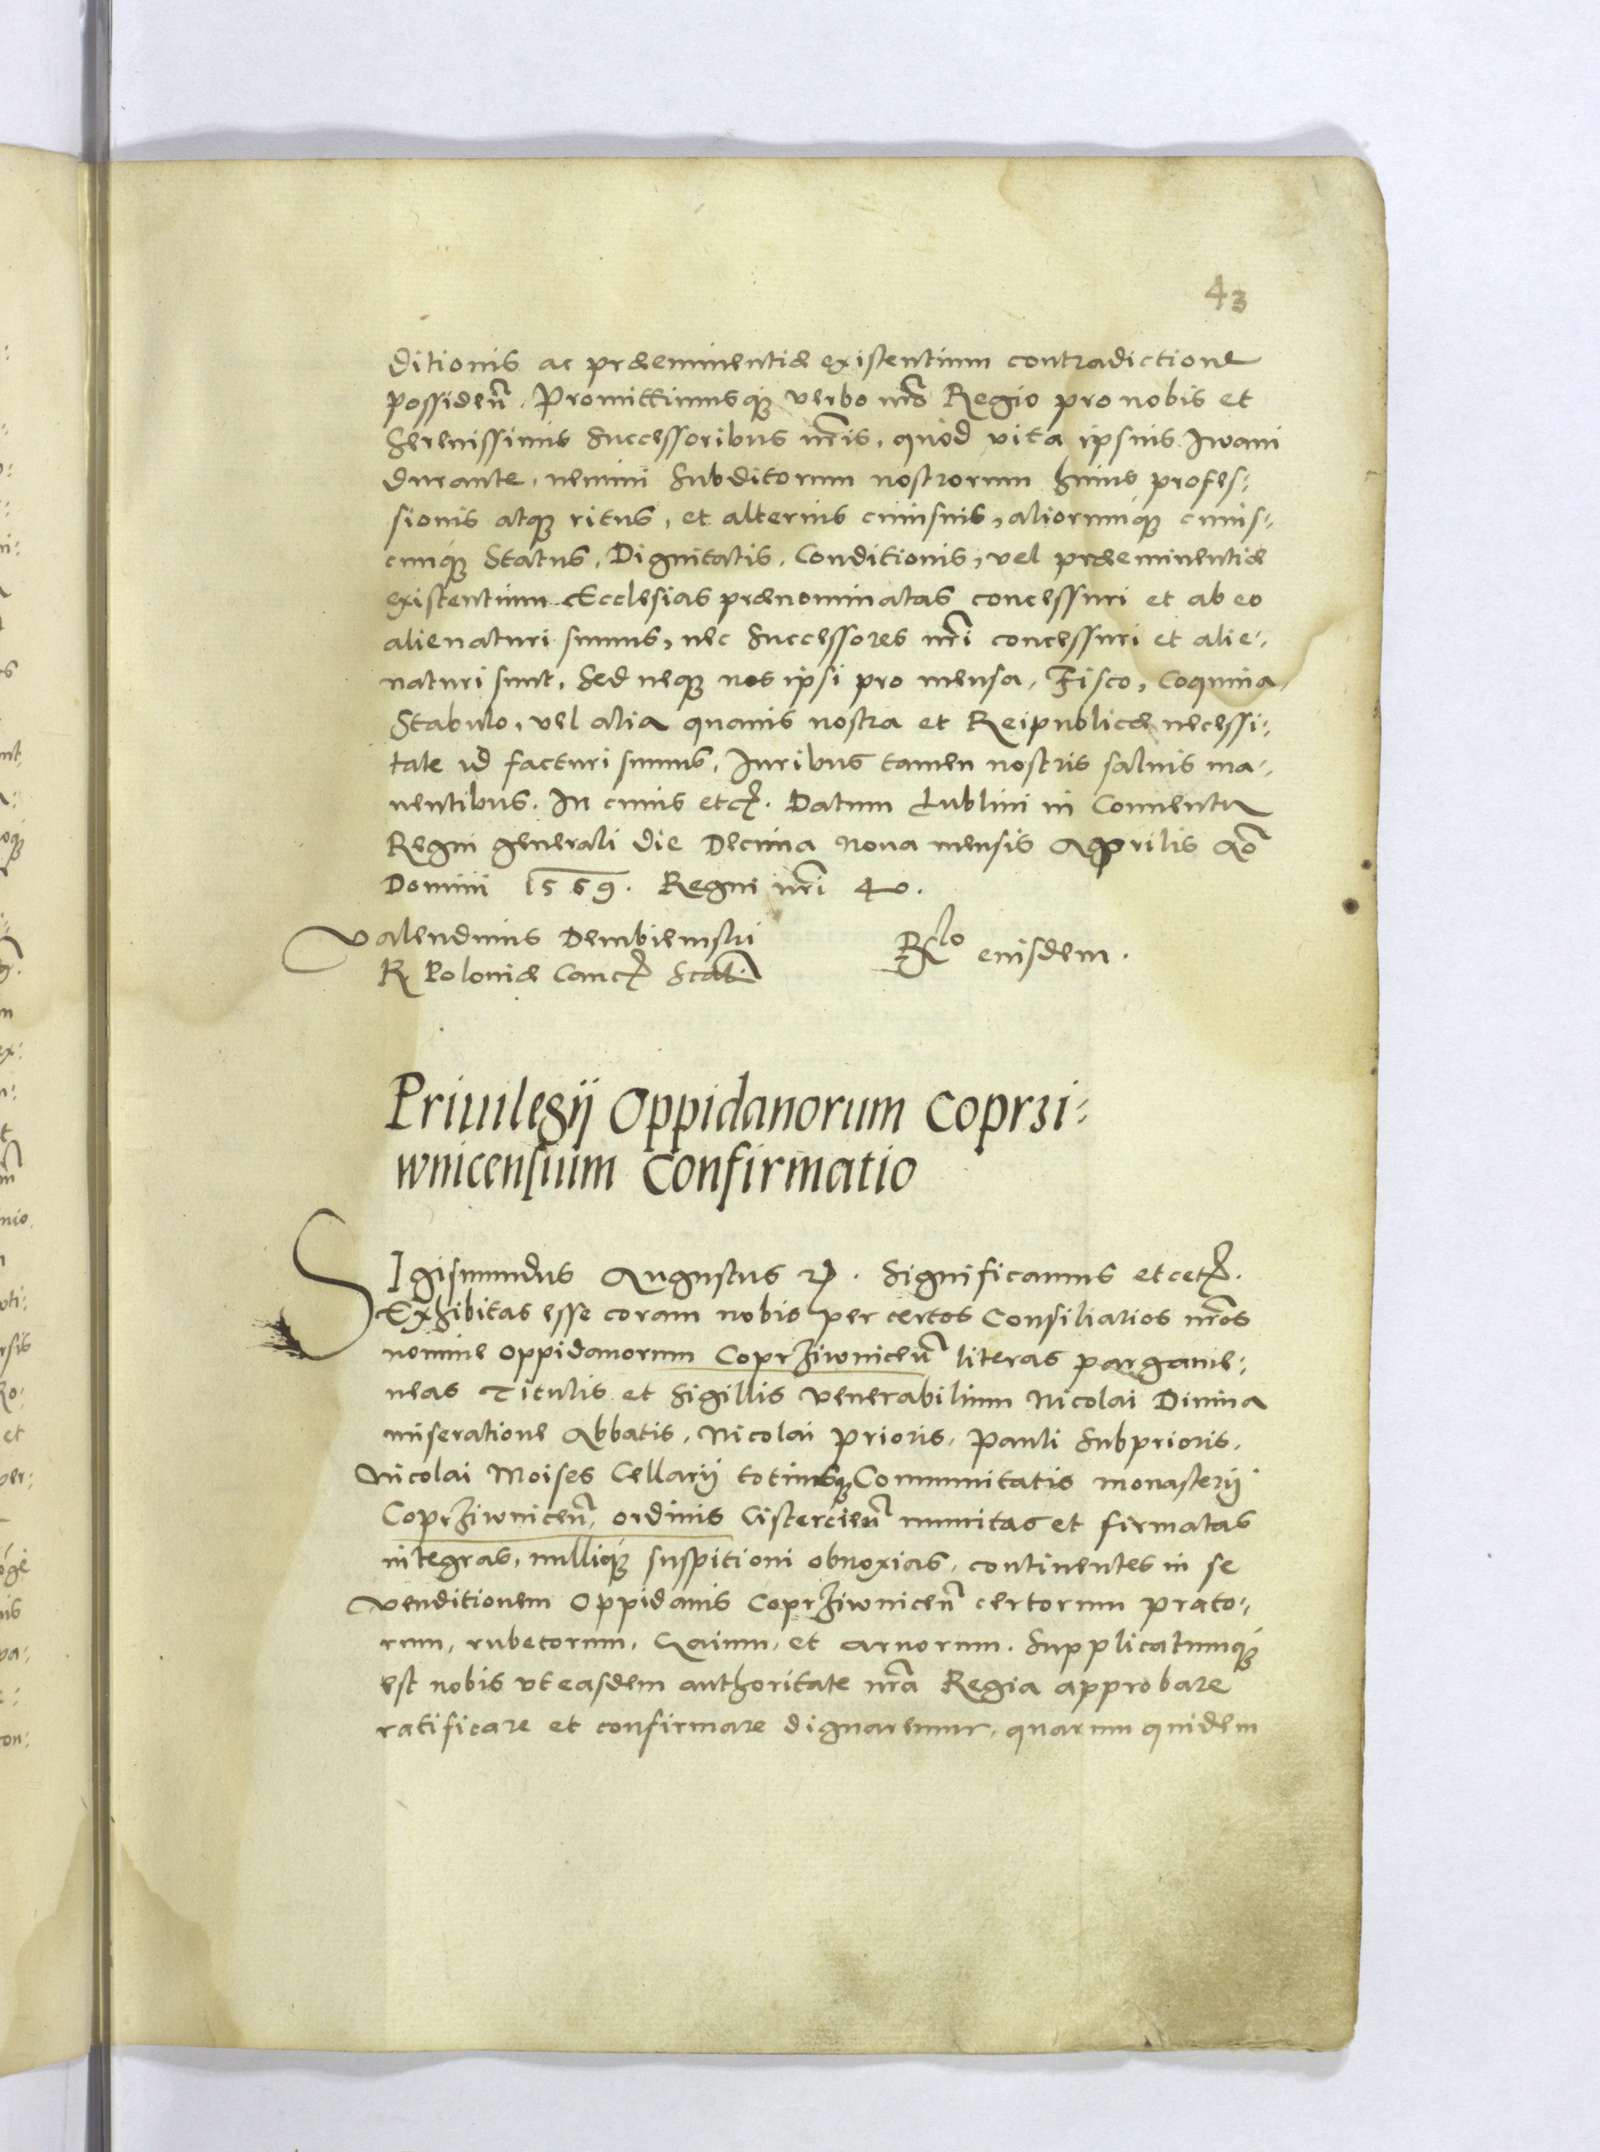 43
ditionis ac præeminentiæ existentium contradictione
possideñ. Promittimusq3 verbo nrõ Regio pro nobis et
Serenissimis Successoribus nrĩs, quod vita ipsius Iwani
durante, nemini Subditorum nostrorum huius profes:
sionis atq3 ritus, et alterius cuiusuis, aliorumq3 cuius:
cunq3 Status, Dignitatis, Conditionis, vel præeminentiæ
existentium Ecclesias prænominatas concessuri et ab eo
alienaturi sumus, nec Successores nrĩ concessuri et alie:
naturi sunt, Sed neq3 nos ipsi pro mensa, Fisco, Coquina,
Stabulo, vel alia quauis nostra et Reipublicæ necessi:
tate id facturi sumus, Iuribus tamen nostris saluis ma:
nentibus. In cuius etc. Datum Lublini in Conuentu
Regni generali die Decima Nona mensis Aprilis Aõ
Domini 1569. Regni nrĩ 40.
Valendinus Dembiemski
R Poloniæ Canc Scab
Rlo eiusdem.
Priuilegij Oppidanorum Coprzi:
wnicensium Confirmatio
SIgismundus Augustus R. Significamus etcet.
Exhibitas esse coram nobis per certos Consiliarios nrõs
nomine Oppidanorum Coprziwniceñ literas pargame:
neas Titulis et Sigillis Venerabilium Nicolai Diuina
miseratione Abbatis, Nicolai Prioris, Pauli Subprioris,
Nicolai Moises Cellarij totiusq3 Communitatis monasterij
Coprziwniceñ, ordinis Cistercieñ munitas et firmatas
integras, nulliq3 suspitioni obnoxias, continentes in se
Venditionem Oppidanis Coprziwniceñ certorum prato:
rum, rubetorum, Gaium, et aruorum. Supplicatumq3
est nobis vt easdem authoritate nrã Regia approbare
ratificare et confirmare dignaremur, quarum quidem